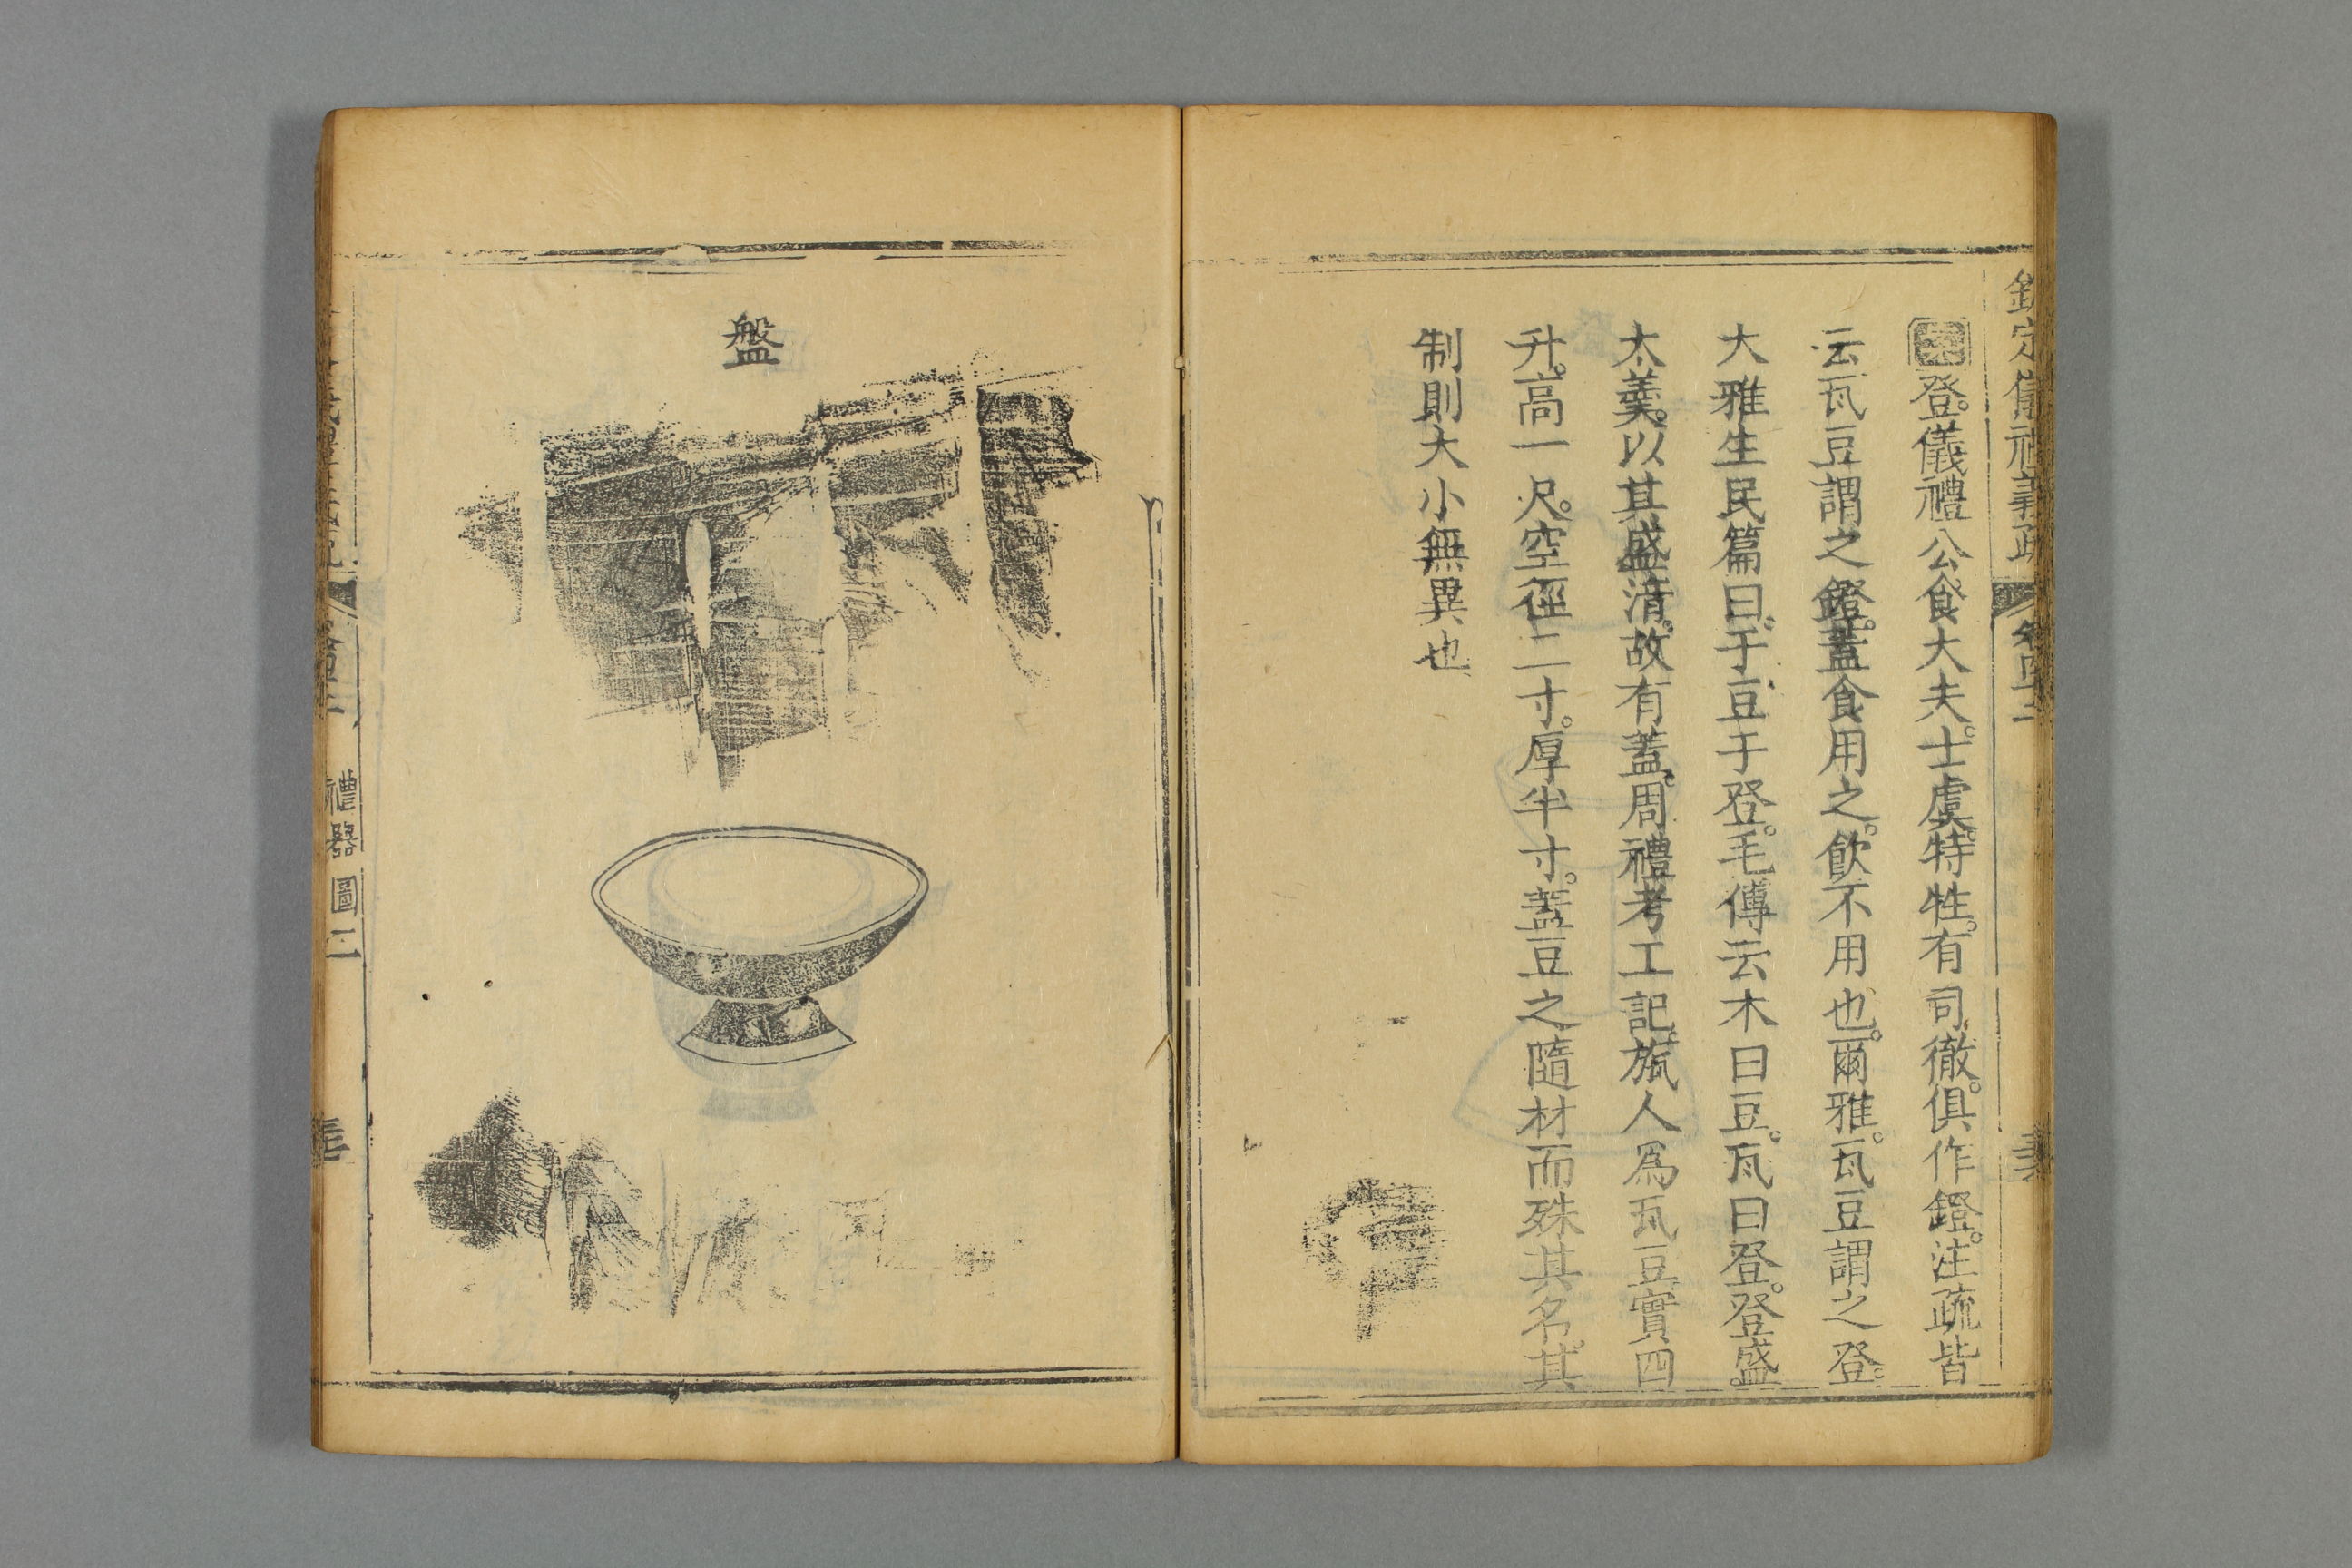 欽定儀禮義疏 卷四十二
登儀禮公食大夫。士虞。特牲。有司徹。俱作鐙。注疏皆
云瓦豆謂之鐙。蓋食用之。飲不用也。爾雅。瓦豆謂之登。
大雅生民篇曰。于豆于登。毛傳云木曰豆。瓦曰登。登盛
太羹。以其盛湆。故有蓋。周禮考工記。旊人爲瓦豆實四
升。高一尺。空徑二寸。厚半寸。蓋豆之隨材而殊其名。其
制則大小無異也
盤
禮器圖二